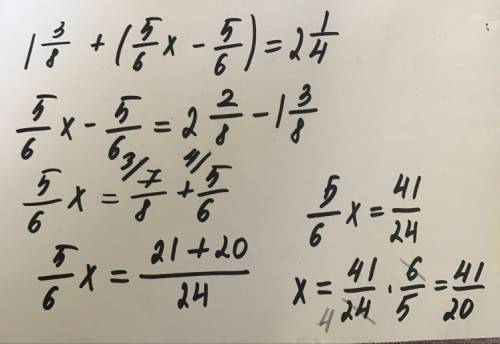 1 3/8 + (5/6 x - 5/6) = 2 1/4
5/6 x - 5/6 = 2 2/8 - 1 3/8
5/6 x = 3/ 7/8 + 4/ 5/6
5/6 x = (21 + 20)/24
5/6 x = 41/24
x = 41/24 · 6/5 = 41/20
4